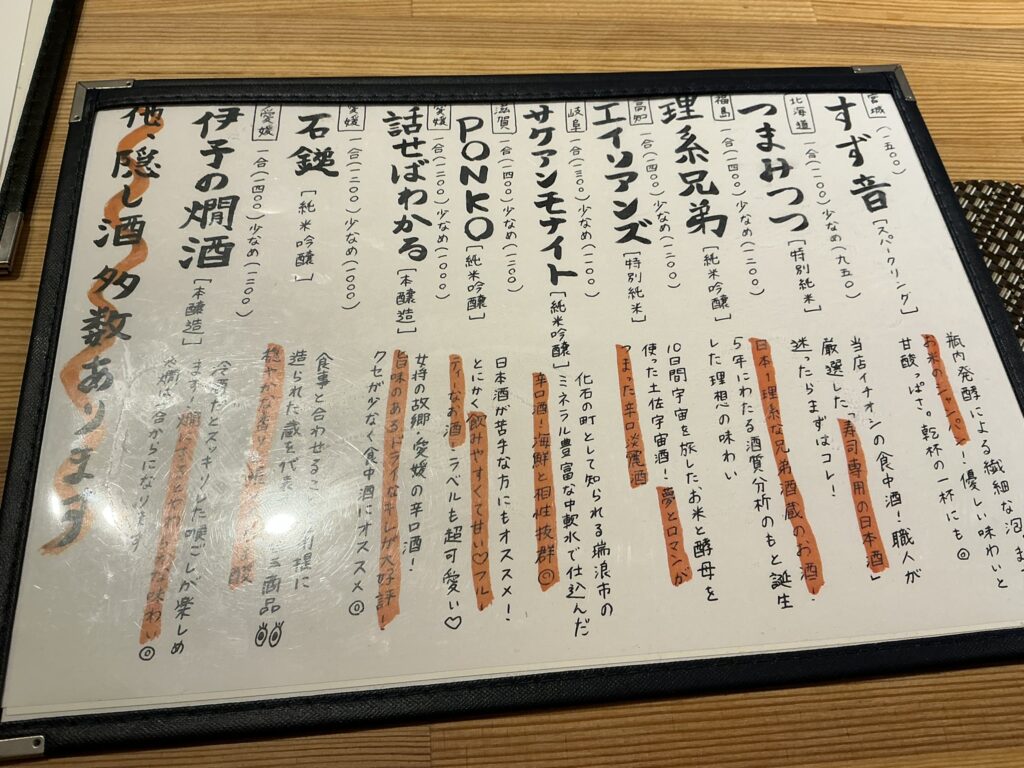 宮城
すず音
(一五〇〇)
[スパークリング]
瓶内発酵による繊細な泡。
お米のシャンパン!優しい味わいと
甘酸っぱさ。乾杯の一杯にも◎
北海道
つまみつつ
少なめ(九五〇)
[特別純米]
当店イチオシの食中酒!職人が
厳選した「寿司専用の日本酒」
迷ったらまずはコレ!
福島
理系兄弟
一合(一四〇〇)少なめ(一二〇〇)
[純米吟醸]
日本一理系な兄弟酒蔵のお酒!
5年にわたる酒質分析のもと誕生
した理想の味わい
高知
エイソアンズ
一合(一四〇〇)少なめ(一二〇〇)
[特別純米]
10日間宇宙を旅した、お米と酵母を
使った土佐宇宙酒!夢とロマンが
つまった辛口淡麗酒
岐阜
サケアンモナイト
一合(一三〇〇)少なめ(一一〇〇)
[純米吟醸]
化石の町として知られる瑞浪市の
ミネラル豊富な中軟水で仕込んだ
辛口酒!海鮮と相性抜群◎
滋賀
PONKO
一合(一四〇〇)少なめ(一二〇〇)
[純米吟醸]
日本酒が苦手な方にもオススメ!
とにかく飲みやすくて甘い♡フルー
ティーなお酒!ラベルも超可愛い♡
愛媛
話せばわかる
一合(一二〇〇)少なめ(一〇〇〇)
[本醸造]
女将の故郷・愛媛の辛口酒!
旨味のあるドライなキレが大好評!
クセが少なく食中酒にオススメ◎
愛媛
石鎚
一合(一二〇〇)少なめ(一〇〇〇)
[純米吟醸]
食事と合わせるこ
造られた蔵を代表 商品
穏やかな香り
愛媛
伊予の燗酒
一合(一四〇〇)少なめ(一二〇〇)
[本醸造]
冷酒だとスッキリした喉ごしが楽しめ
ます!燗に 味わい◎
合からになります
他、隠し酒多数あります